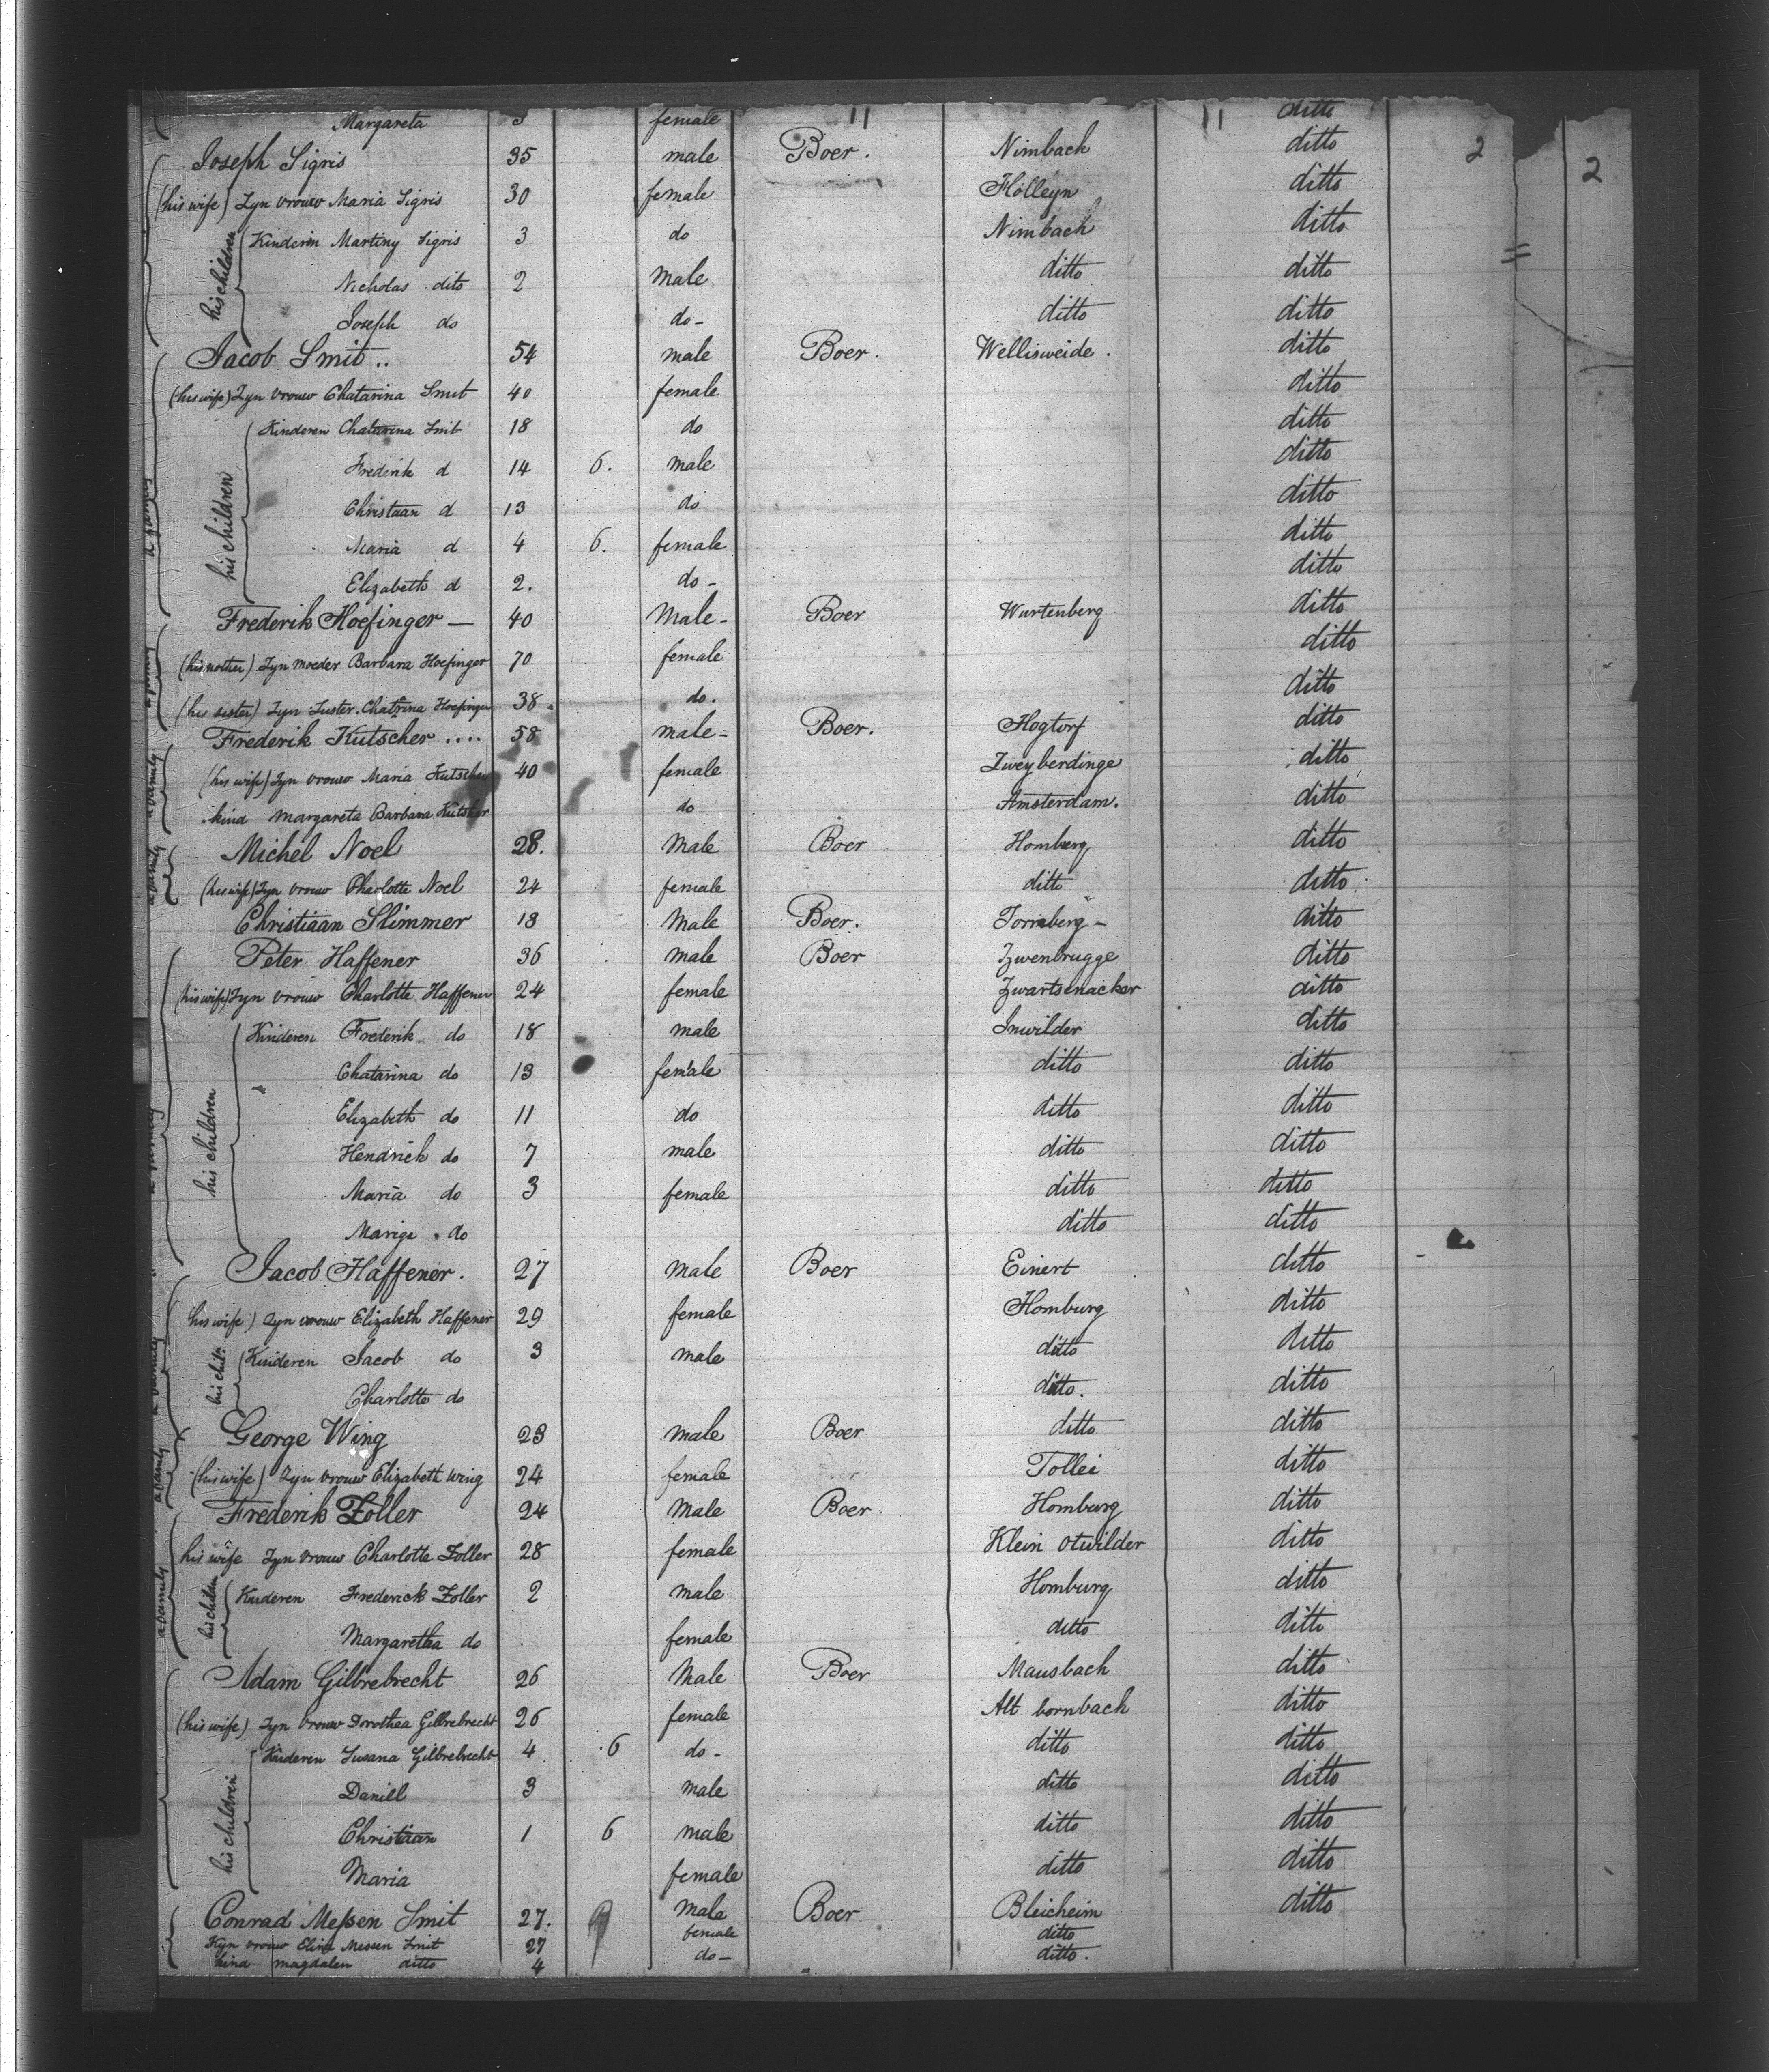 Margareta 3 female 11 11 ditto
Joseph Sigris 35 male Boer. Nimbach ditto 2 2
(his wife) Zyn vrouw Maria Sigris 30 female Hölleyn ditto
Kinderen Martiny Sigris 3 do Nimbach ditto
his children
Nicholas dito 2 male ditto ditto
Joseph do do- ditto ditto
Jacob Smit.. 54 male Boer. Wellisweide. ditto
(his wife) Zyn vrouw Chatarina Smit 40 female ditto
Kinderen Chatarina Smit 18 do ditto
a family his children
Frederik d 14 6. male ditto
Christaan d 13 do ditto
Maria d 4 6. female ditto
Elizabeth d 2. do- ditto
Frederik Hoefinger — 40 Male- Boer Wurtenberg ditto
(his mother) Zyn moeder Barbara Hoefinger 70 female ditto
(his sister) Zyn Suster. Chatrina Hoefinger 38. do. ditto
Frederik Kutscher .... 58 male- Boer. Hogtorf ditto
a family
(his wife) Zyn vrouw Maria Kutscher 40 female Zweyberdinge ditto
kind Margareta Barbara Kutscher do Amsterdam. ditto
Michel Noel 28. Male Boer Homberg ditto
a family
(his wife) Zyn vrouw Charlotte Noel 24 female ditto ditto
Christiaan Slimmer 18 Male Boer. Tornberg- ditto
Peter Haffener 36 male Boer Zwenbrugge ditto
(his wife) Zyn vrouw Charlotte Haffener 24 female Zwartsenacker ditto
Kinderen Frederik do 18 male Inwilder ditto
Chatarina do 13 female ditto ditto
a family his children
Elizabeth do 11 do ditto ditto
Hendrick do 7 male ditto ditto
Maria do 3 female ditto ditto
Mariga do ditto ditto
Jacob Haffener. 27 Male Boer Einert ditto
his wife) Zyn vrouw Elizabeth Haffener 29 female Homburg ditto
a family
Kinderen Jacob do 3 male ditto ditto
Charlotte do ditto. ditto
George Wing 23 male Boer ditto ditto
a family
(his wife) Zyn vrouw Elizabeth Wing 24 female Tollei ditto
Frederik Zoller 24 Male Boer Homburg ditto
his wife Zyn vrouw Charlotte Zoller 28 female Klein otwilder ditto
a family his children
Kinderen Frederick Zoller 2 male Homburg ditto
Margaretha do female ditto ditto
Adam Gilbrebrecht 26 Male Boer Mausbach ditto
(his wife) Zyn vrouw Dorothea Gilbrebrecht 26 female Alt bornbach ditto
Kinderen Susana Gilbrebrecht 4 6 do- ditto ditto
his children
Daniell 3 male ditto ditto
Christiaan 1 6 male ditto ditto
Maria female ditto ditto
Conrad Messen Smit 27. Male Boer Bleicheim ditto
Zyn vrouw Elina Messen Smit 27 female ditto
kind magdalen ditto 4 do- ditto.